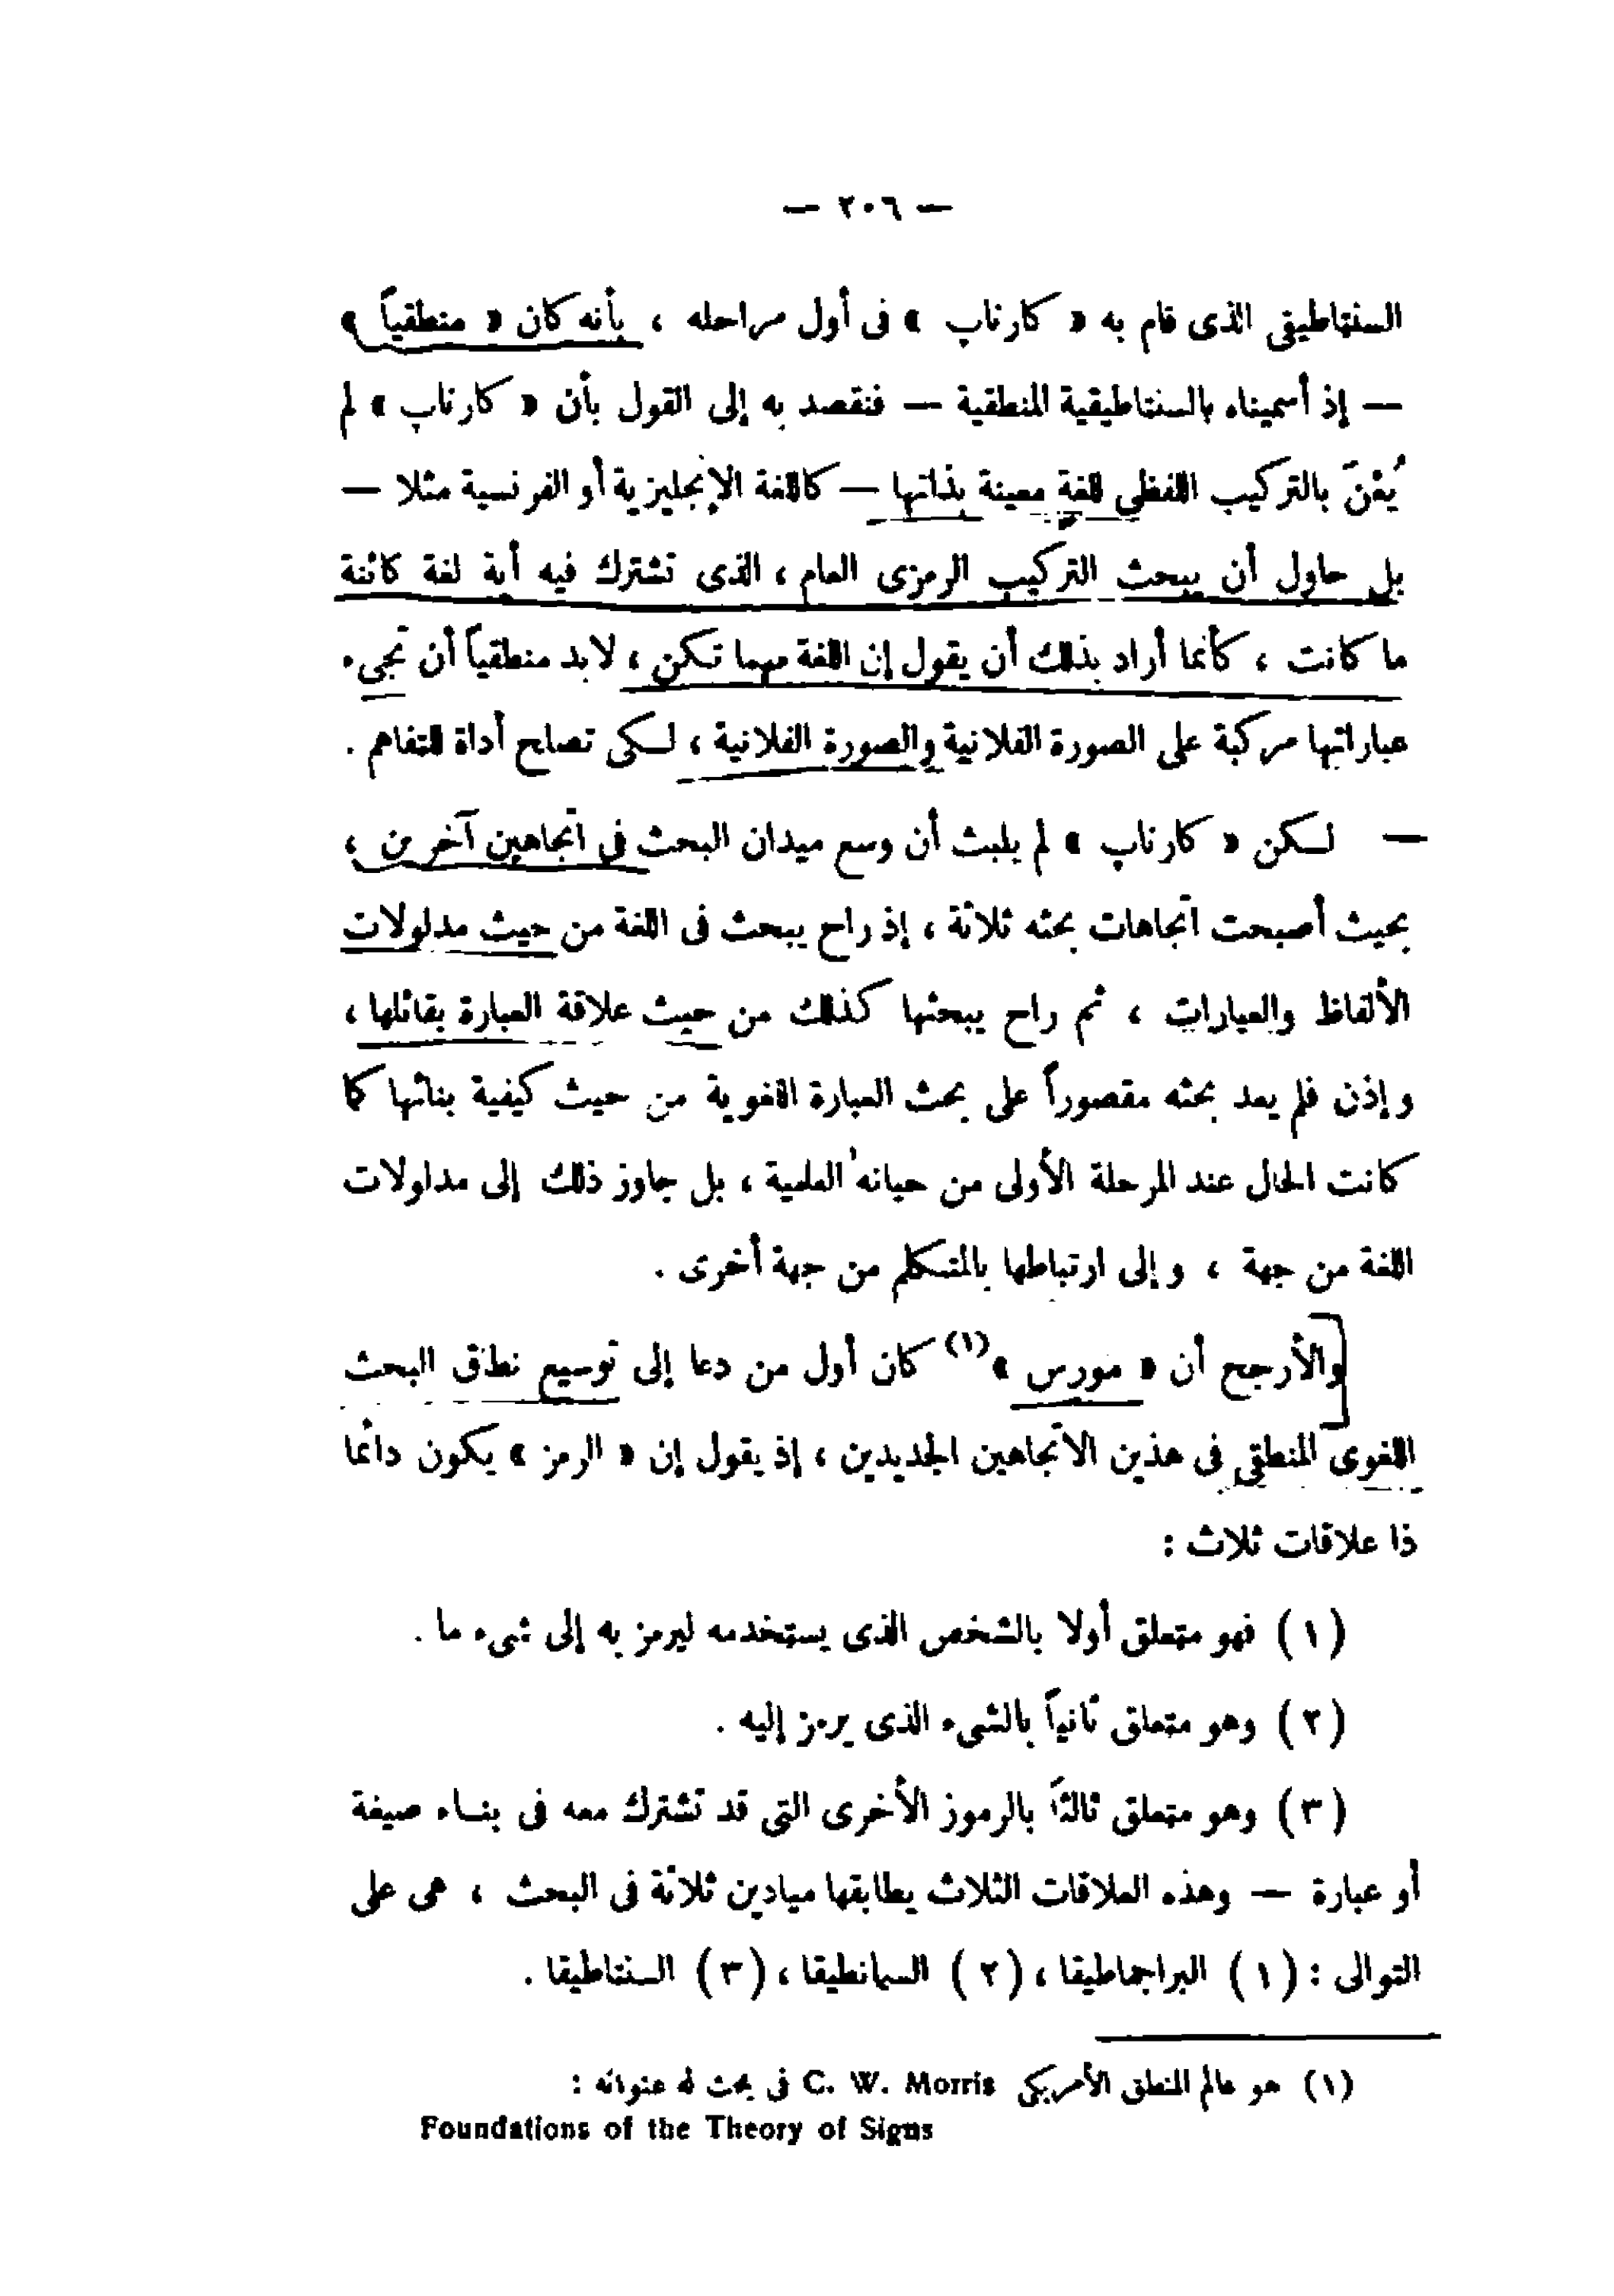 — ٢٠٦ —
السنتاطيقى الذى قام به « كارناپ » فى أول مراحله ، بأنه كان « منطقياً »
— إذ أسميناه بالسنتاطيقية المنطقية — فنقصد به إلى القول بأن « كارناپ » لم
يُعْنَ بالتركيب اللفظى للغة معينة بذاتها — كاللغة الإنجليزية أو الفرنسية مثلا —
بل حاول أن يبحث التركيب الرمزى العام ، الذى تشترك فيه أية لغة كائنة
ما كانت ، كأنما أراد بذلك أن يقول إن اللغة مهما تكن ، لابد منطقياً أن تجىء
عباراتها مركبة على الصورة الفلانية والصورة الفلانية ، لكى تصلح أداة للتفاهم .
— لكن « كارناپ » لم يلبث أن وسع ميدان البحث فى اتجاهين آخرين ،
بحيث أصبحت اتجاهات بحثه ثلاثة ، إذ راح يبحث فى اللغة من حيث مدلولات
الألفاظ والعبارات ، ثم راح يبحثها كذلك من حيث علاقة العبارة بقائلها ،
وإذن فلم يعد بحثه مقصوراً على بحث العبارة اللغوية من حيث كيفية بنائها كما
كانت الحال عند المرحلة الأولى من حياته العلمية ، بل جاوز ذلك إلى مدلولات
اللغة من جهة ، وإلى ارتباطها بالمتكلم من جهة أخرى .
والأرجح أن « مورس »(١) كان أول من دعا إلى توسيع نطاق البحث
اللغوى المنطقى فى هذين الاتجاهين الجديدين ، إذ يقول إن « الرمز » يكون دائما
ذا علاقات ثلاث :
(١) فهو متعلق أولا بالشخص الذى يستخدمه ليرمز به إلى شىء ما .
(٢) وهو متعلق ثانياً بالشىء الذى يرمز إليه .
(٣) وهو متعلق ثالثاً بالرموز الأخرى التى قد تشترك معه فى بناء صيغة
أو عبارة — وهذه العلاقات الثلاث يطابقها ميادين ثلاثة فى البحث ، هى على
التوالى : (١) البراجماطيقا ، (٢) السيمانطيقا ، (٣) السنتاطيقا .
(١) هو عالم المنطق الأمريكى C. W. Morris فى بحث له عنوانه :
Foundations of the Theory of Signs